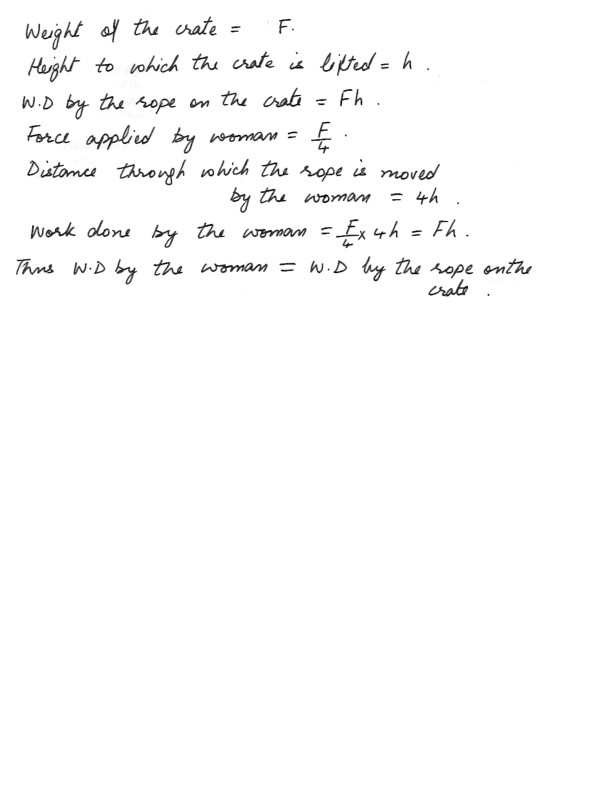 Weight of the crate = F.
Height to which the crate is lifted = h .
W.D by the rope on the crate = Fh .
Force applied by woman = F/4 .
Distance through which the rope is moved
by the woman = 4h .
Work done by the woman = F/4 x 4h = Fh .
Thus W.D by the woman = W.D by the rope on the
crate .